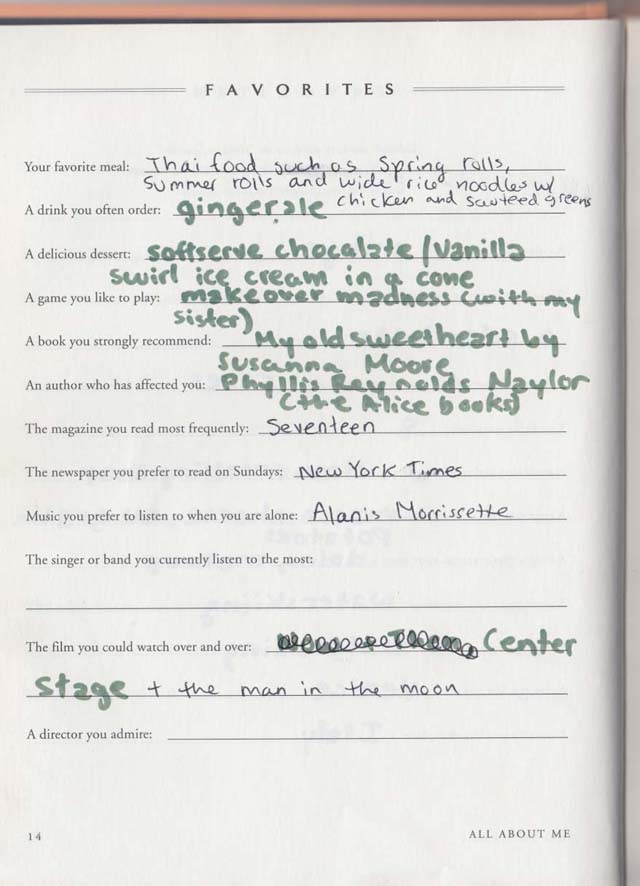 FAVORITES
Your favorite meal: Thai food such as Spring rolls,
summer rolls and wide rice noodles w/
chicken and sauteed greens
A drink you often order: gingerale
A delicious dessert: softserve chocalate/Vanilla
swirl ice cream in a cone
A game you like to play: makeover madness (with my
sister)
A book you strongly recommend: My old sweetheart by
Susanna Moore
An author who has affected you: Phyllis Reynolds Naylor
(the Alice books)
The magazine you read most frequently: Seventeen
The newspaper you prefer to read on Sundays: New York Times
Music you prefer to listen to when you are alone: Alanis Morrissette
The singer or band you currently listen to the most:
The film you could watch over and over: Center
Stage + the man in the moon
A director you admire:
14 ALL ABOUT ME